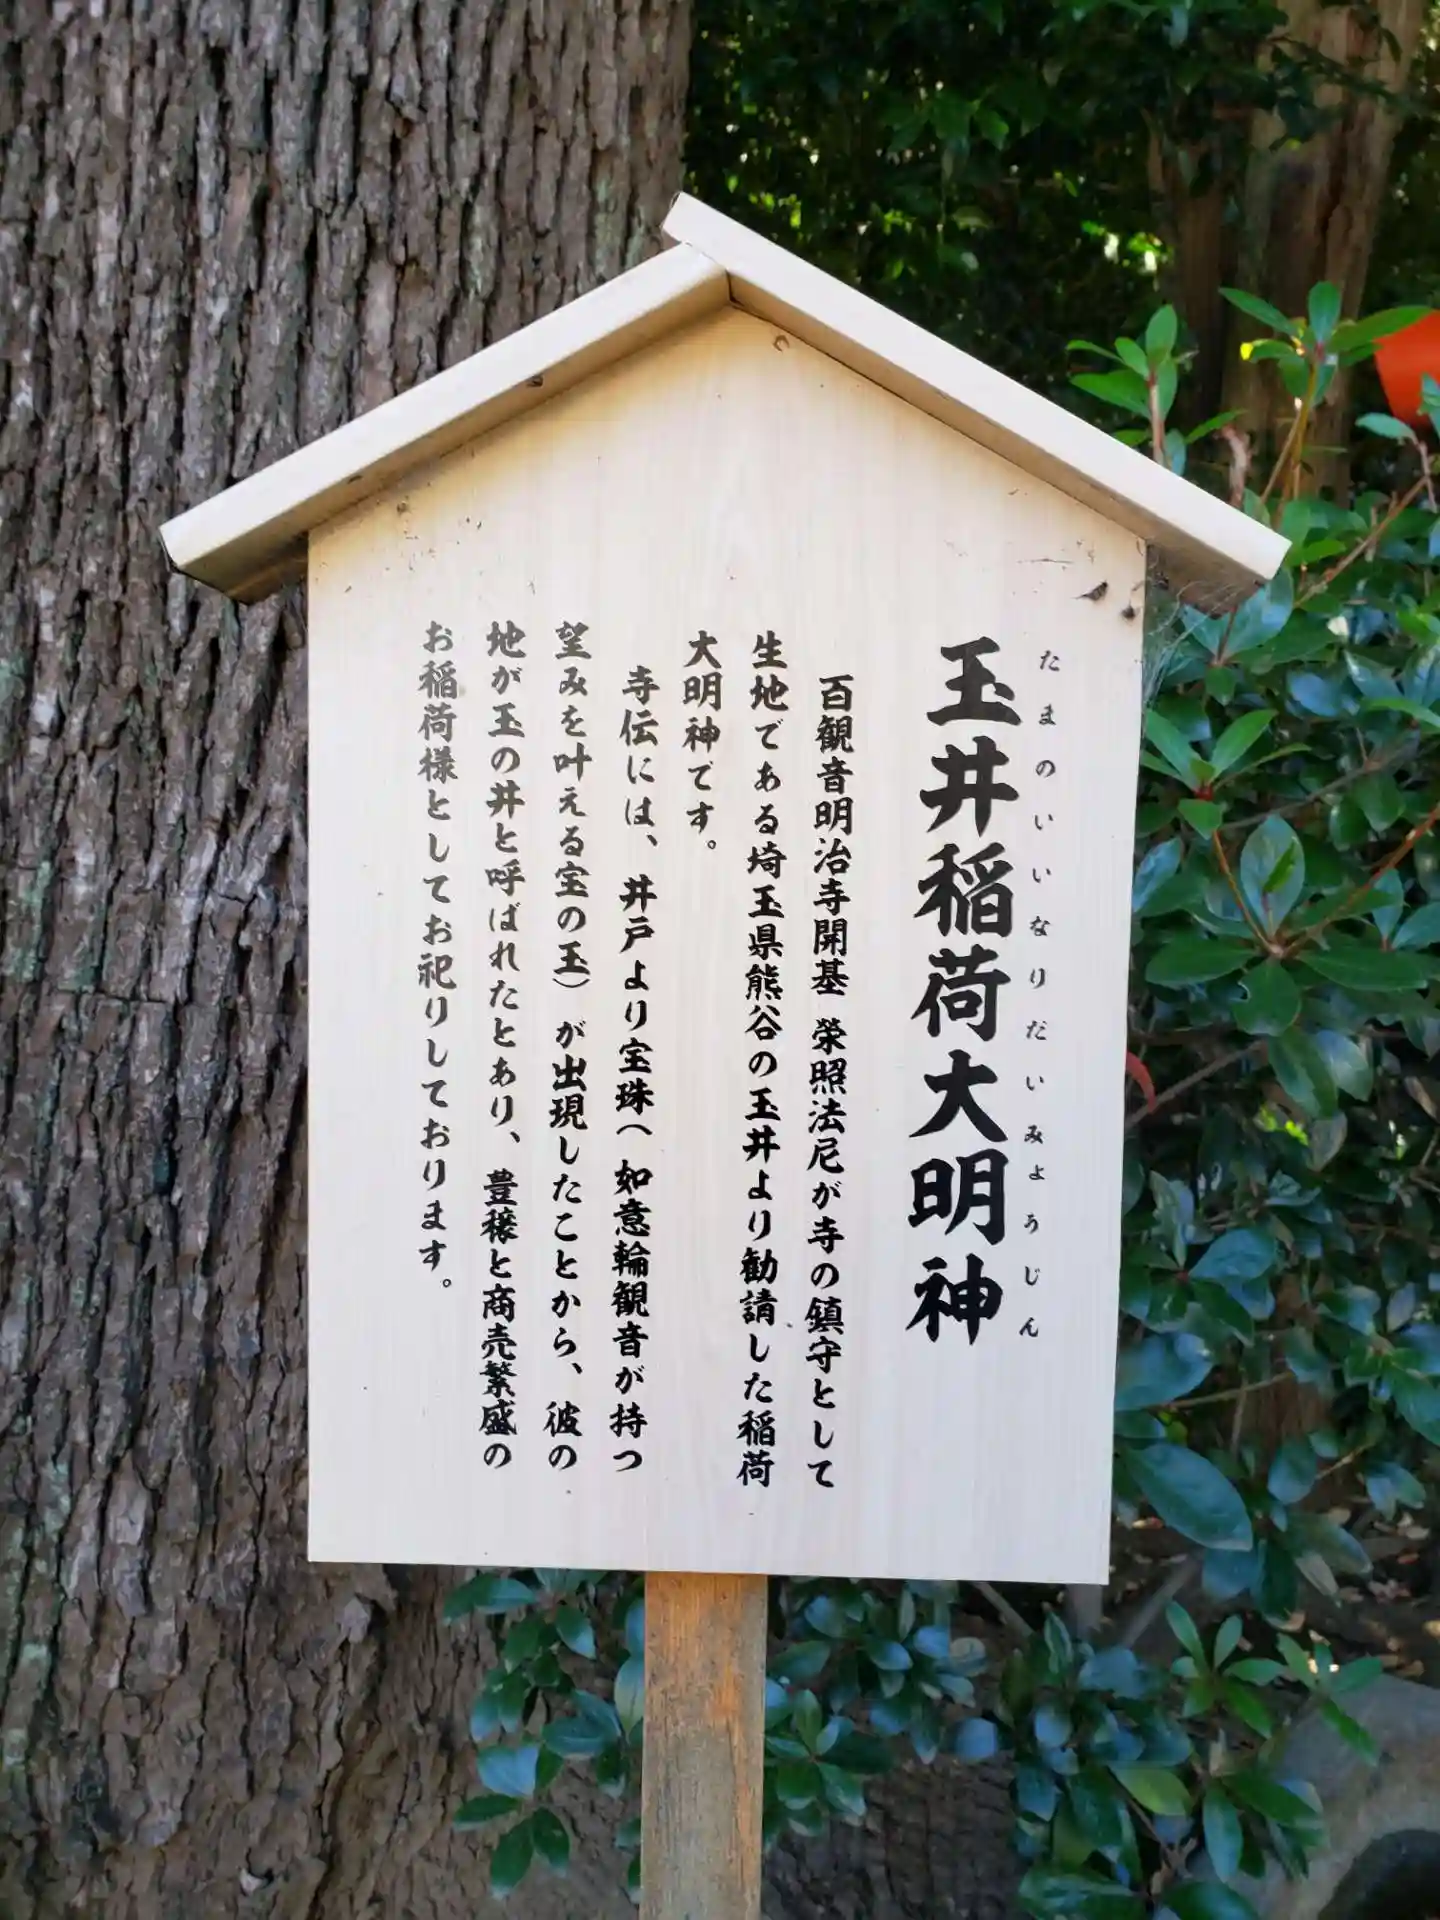 玉井稲荷大明神
たまのいいなりだいみょうじん
百観音明治寺開基 榮照法尼が寺の鎮守として
生地である埼玉県熊谷の玉井より勧請した稲荷
大明神です。
寺伝には、井戸より宝珠(如意輪観音が持つ
望みを叶える宝の玉)が出現したことから、彼の
地が玉の井と呼ばれたとあり、豊穣と商売繁盛の
お稲荷様としてお祀りしております。